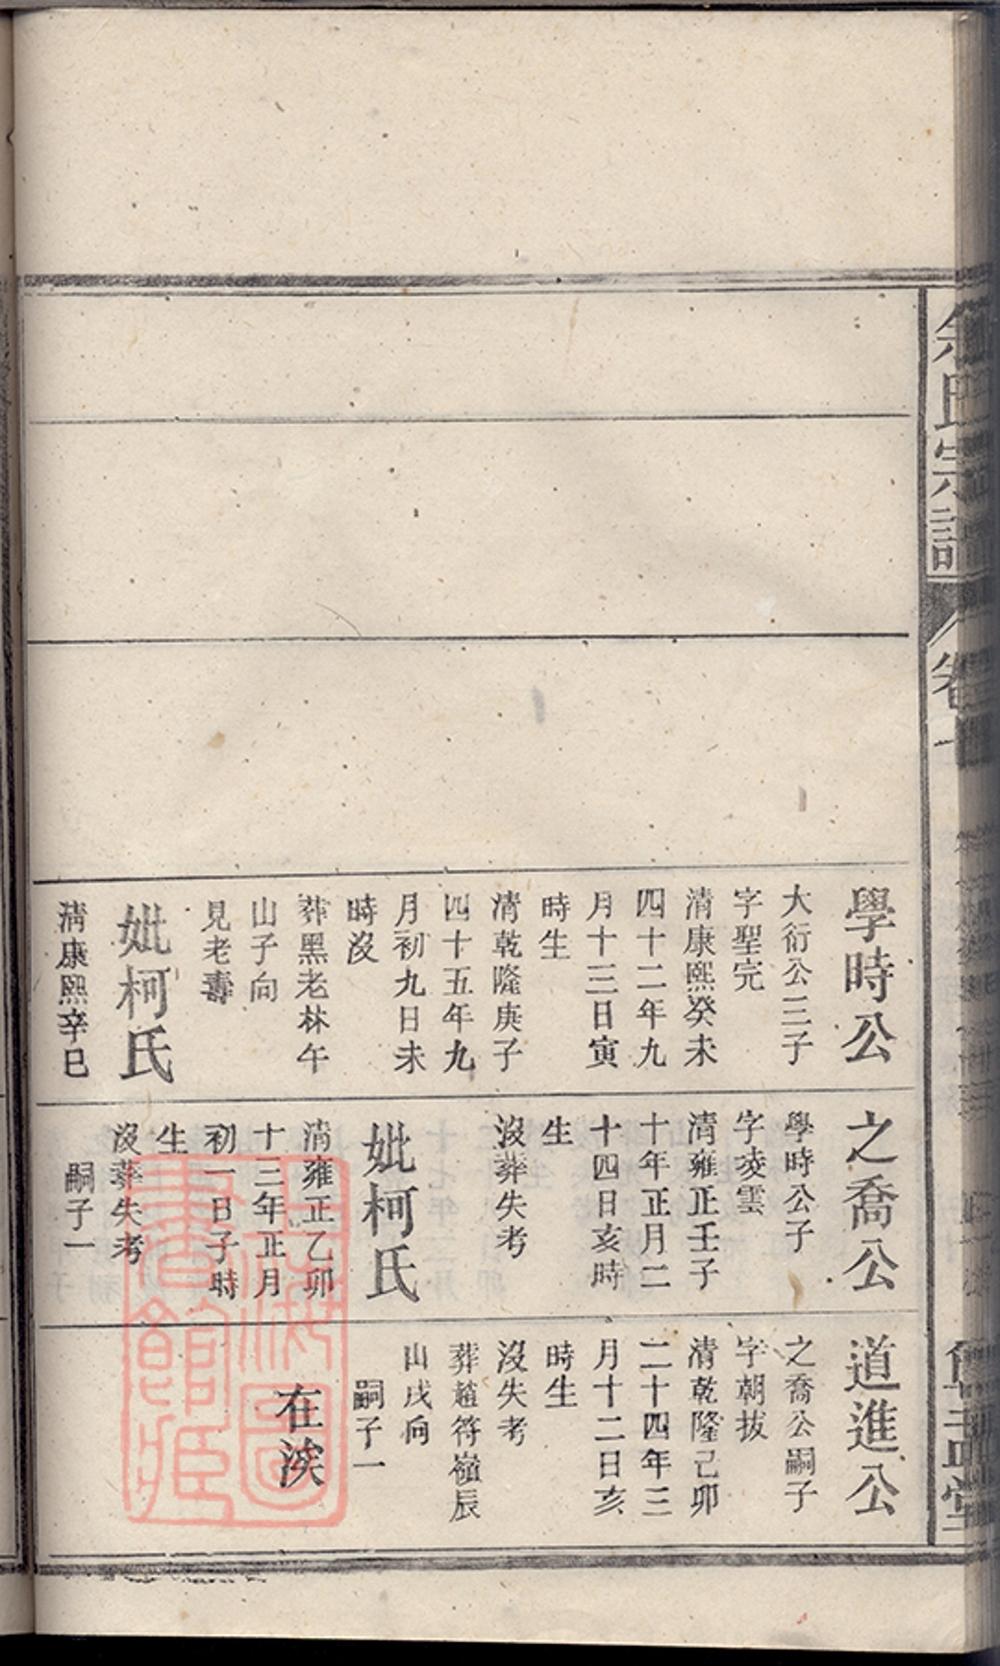 余氏宗譜
卷
學時公
大衍公三子
字聖完
清康熙癸未
四十二年九
月十三日寅
時生
清乾隆庚子
四十五年九
月初九日未
時沒
葬黑老林午
山子向
見老壽
妣柯氏
清康熙辛巳
之喬公
學時公子
字凌雲
清雍正壬子
十年正月二
十四日亥時
生
沒葬失考
妣柯氏
清雍正乙卯
十三年正月
初一日子時
生
沒葬失考
嗣子一
道進公
之喬公嗣子
字朝拔
清乾隆己卯
二十四年三
月十二日亥
時生
沒失考
葬趙符嶺辰
山戌向
嗣子一
在淡
上海圖書館藏